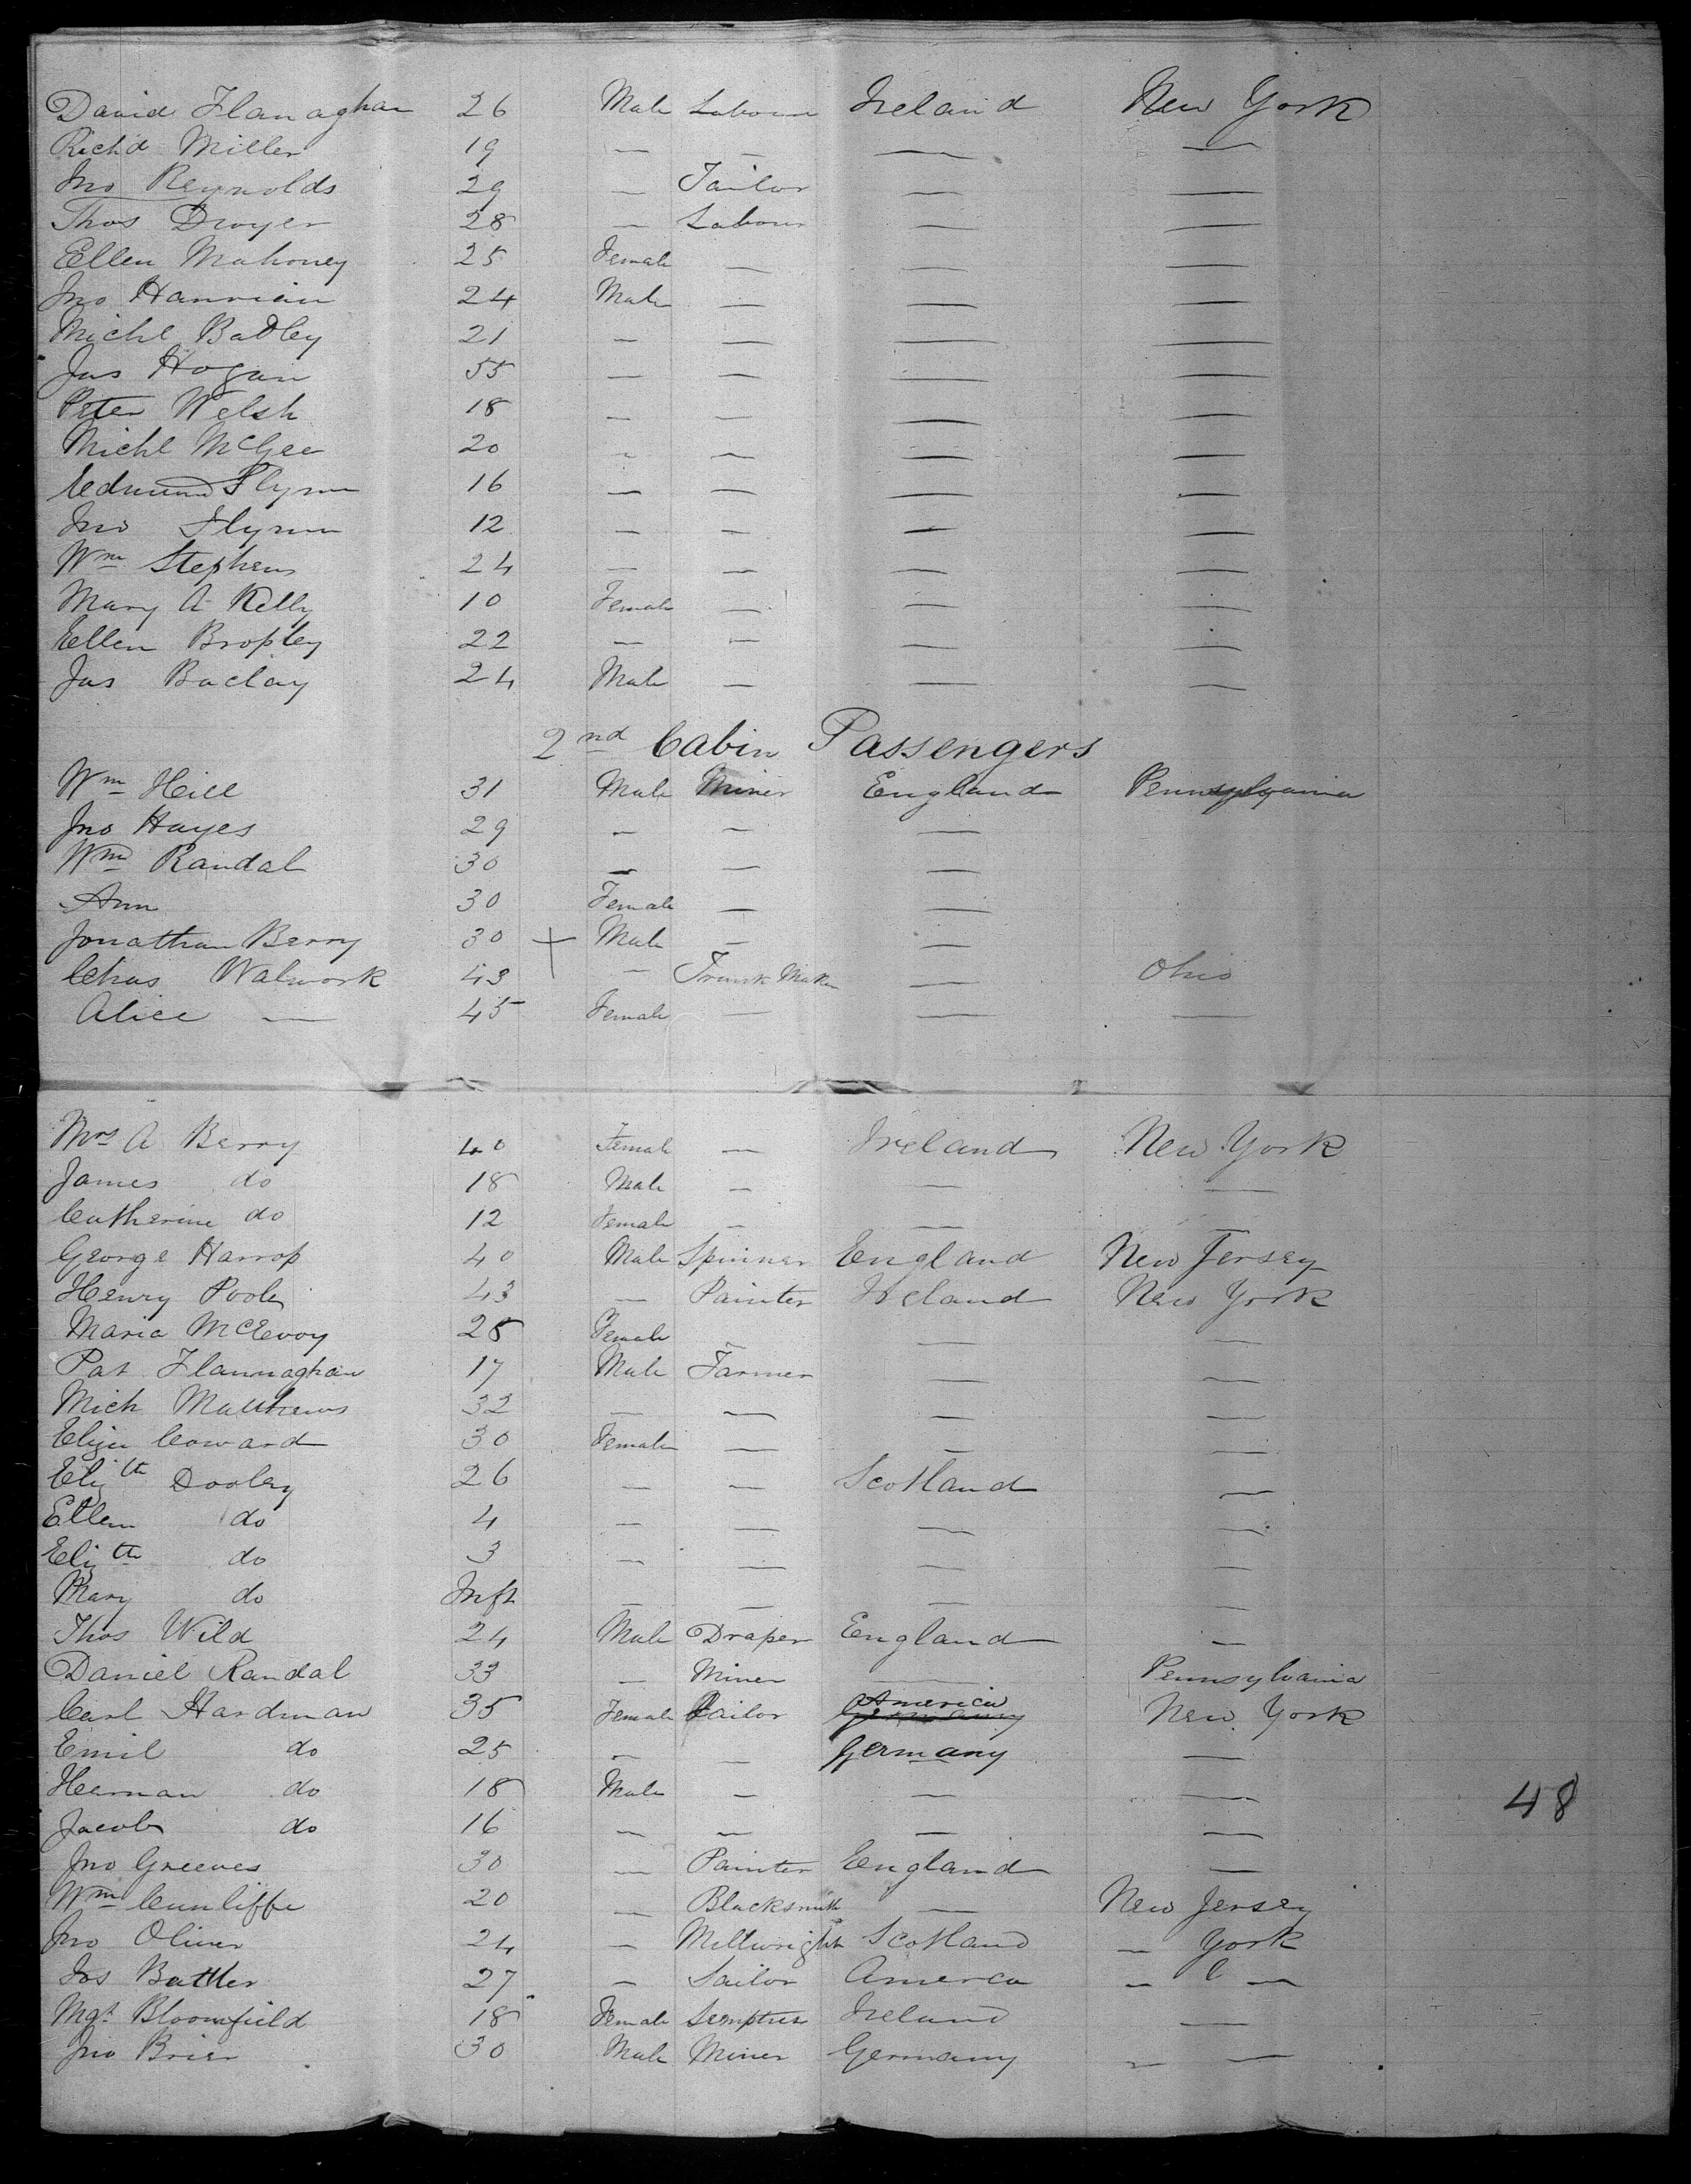 David Flanaghan 26 Male Labour Ireland New York
Richd Miller 19 — — — —
Jno Reynolds 29 — Tailor — —
Thos Dwyer 28 — Labour — —
Ellen Mahoney 25 Female — — —
Jno Hannian 24 Male — — —
Michl Badley 21 — — — —
Jas Hogan 55 — — — —
Peter Welsh 18 — — — —
Michl McGee 20 — — — —
Edmund Flynn 16 — — — —
Jno Flynn 12 — — — —
Wm Stephens 24 — — — —
Mary A Kelly 10 Female — — —
Ellen Brophy 22 — — — —
Jas Baclay 24 Male — — —
2nd Cabin Passengers
Wm Hill 31 Male Miner England Pennsylvania
Jno Hayes 29 — — —
Wm Randal 30 — — —
Ann 30 Female — —
Jonathan Berry 30 + Male — —
Chas Walwork 43 — Trunk Maker — Ohio
Alice — 45 Female — — —
Mrs A Berry 40 Female — Ireland New York
James do 18 Male — — —
Catherine do 12 Female — —
George Harrop 40 Male Spinner England New Jersey
Henry Poole 43 — Painter Ireland New York
Maria McEvoy 25 Female — — —
Pat Flannaghan 17 Male Farmer — —
Mich Matthews 32 — — — —
Eliza Coward 30 Female — — —
Elizth Dooley 26 — — Scotland —
Ellen do 4 — — — —
Elizth do 3 — — — —
Mary do Inft — — — —
Thos Wild 24 Male Draper England —
Daniel Randal 33 — Miner — Pennsylvania
Carl Hardman 35 Female Tailor America Germany New York
Emil do 25 — — Germany —
Herman do 18 Male — — —
48
Jacob do 16 — — — —
Jno Greeves 30 — Painter England —
Wm Cunliffe 20 — Blacksmith — New Jersey
Jno Oliver 24 — Millwright Scotland — York
Jos Battler 27 — Sailor America — " —
Mgt Bloomfield 18 Female Semptress Ireland —
Jno Brier 30 Male Miner Germany — —